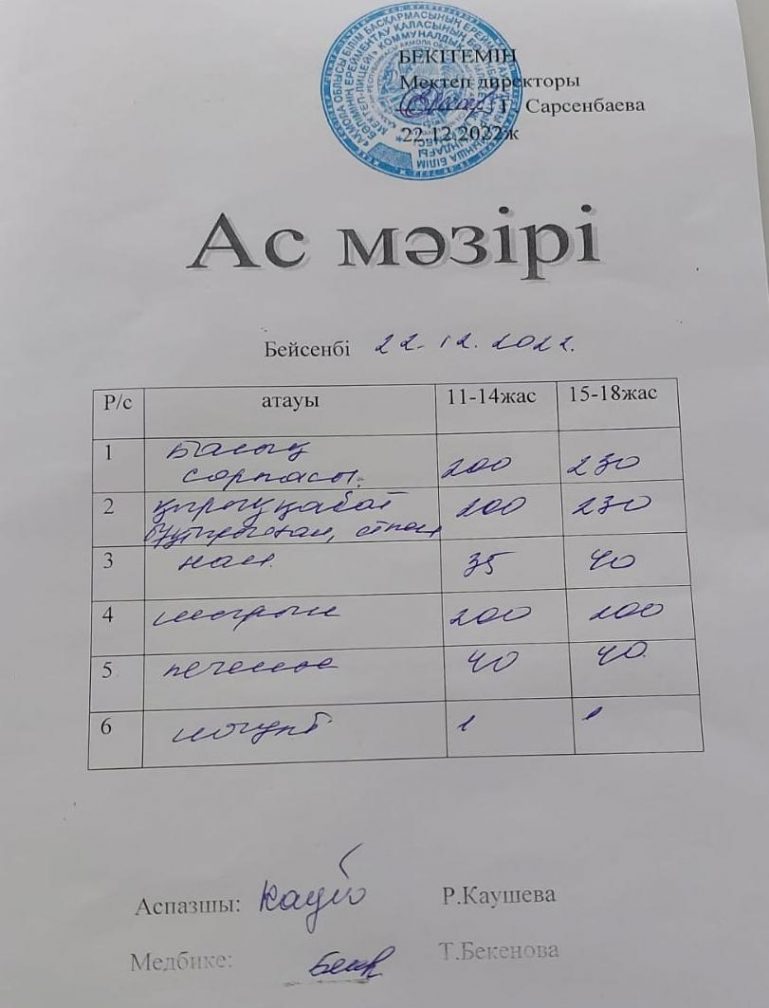 БЕКІТЕМІН
Мектеп директоры
Г. Сарсенбаева
22.12.2022ж
Ас мәзірі
Бейсенбі 22.12.2022.
Р/с атауы 11-14жас 15-18жас
1 Балық сорпасы. 200 230
2 қырыққабат бұқтырылған, етпен 200 230
3 нан 35 40
4 шырын 200 200
5 печенье 40 40
6 йогурт 1 1
Аспазшы: Р.Каушева
Медбике: Т.Бекенова